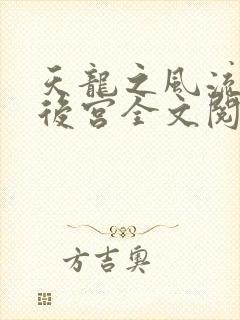 天龍之風流
後宮全文閱
方吉奧